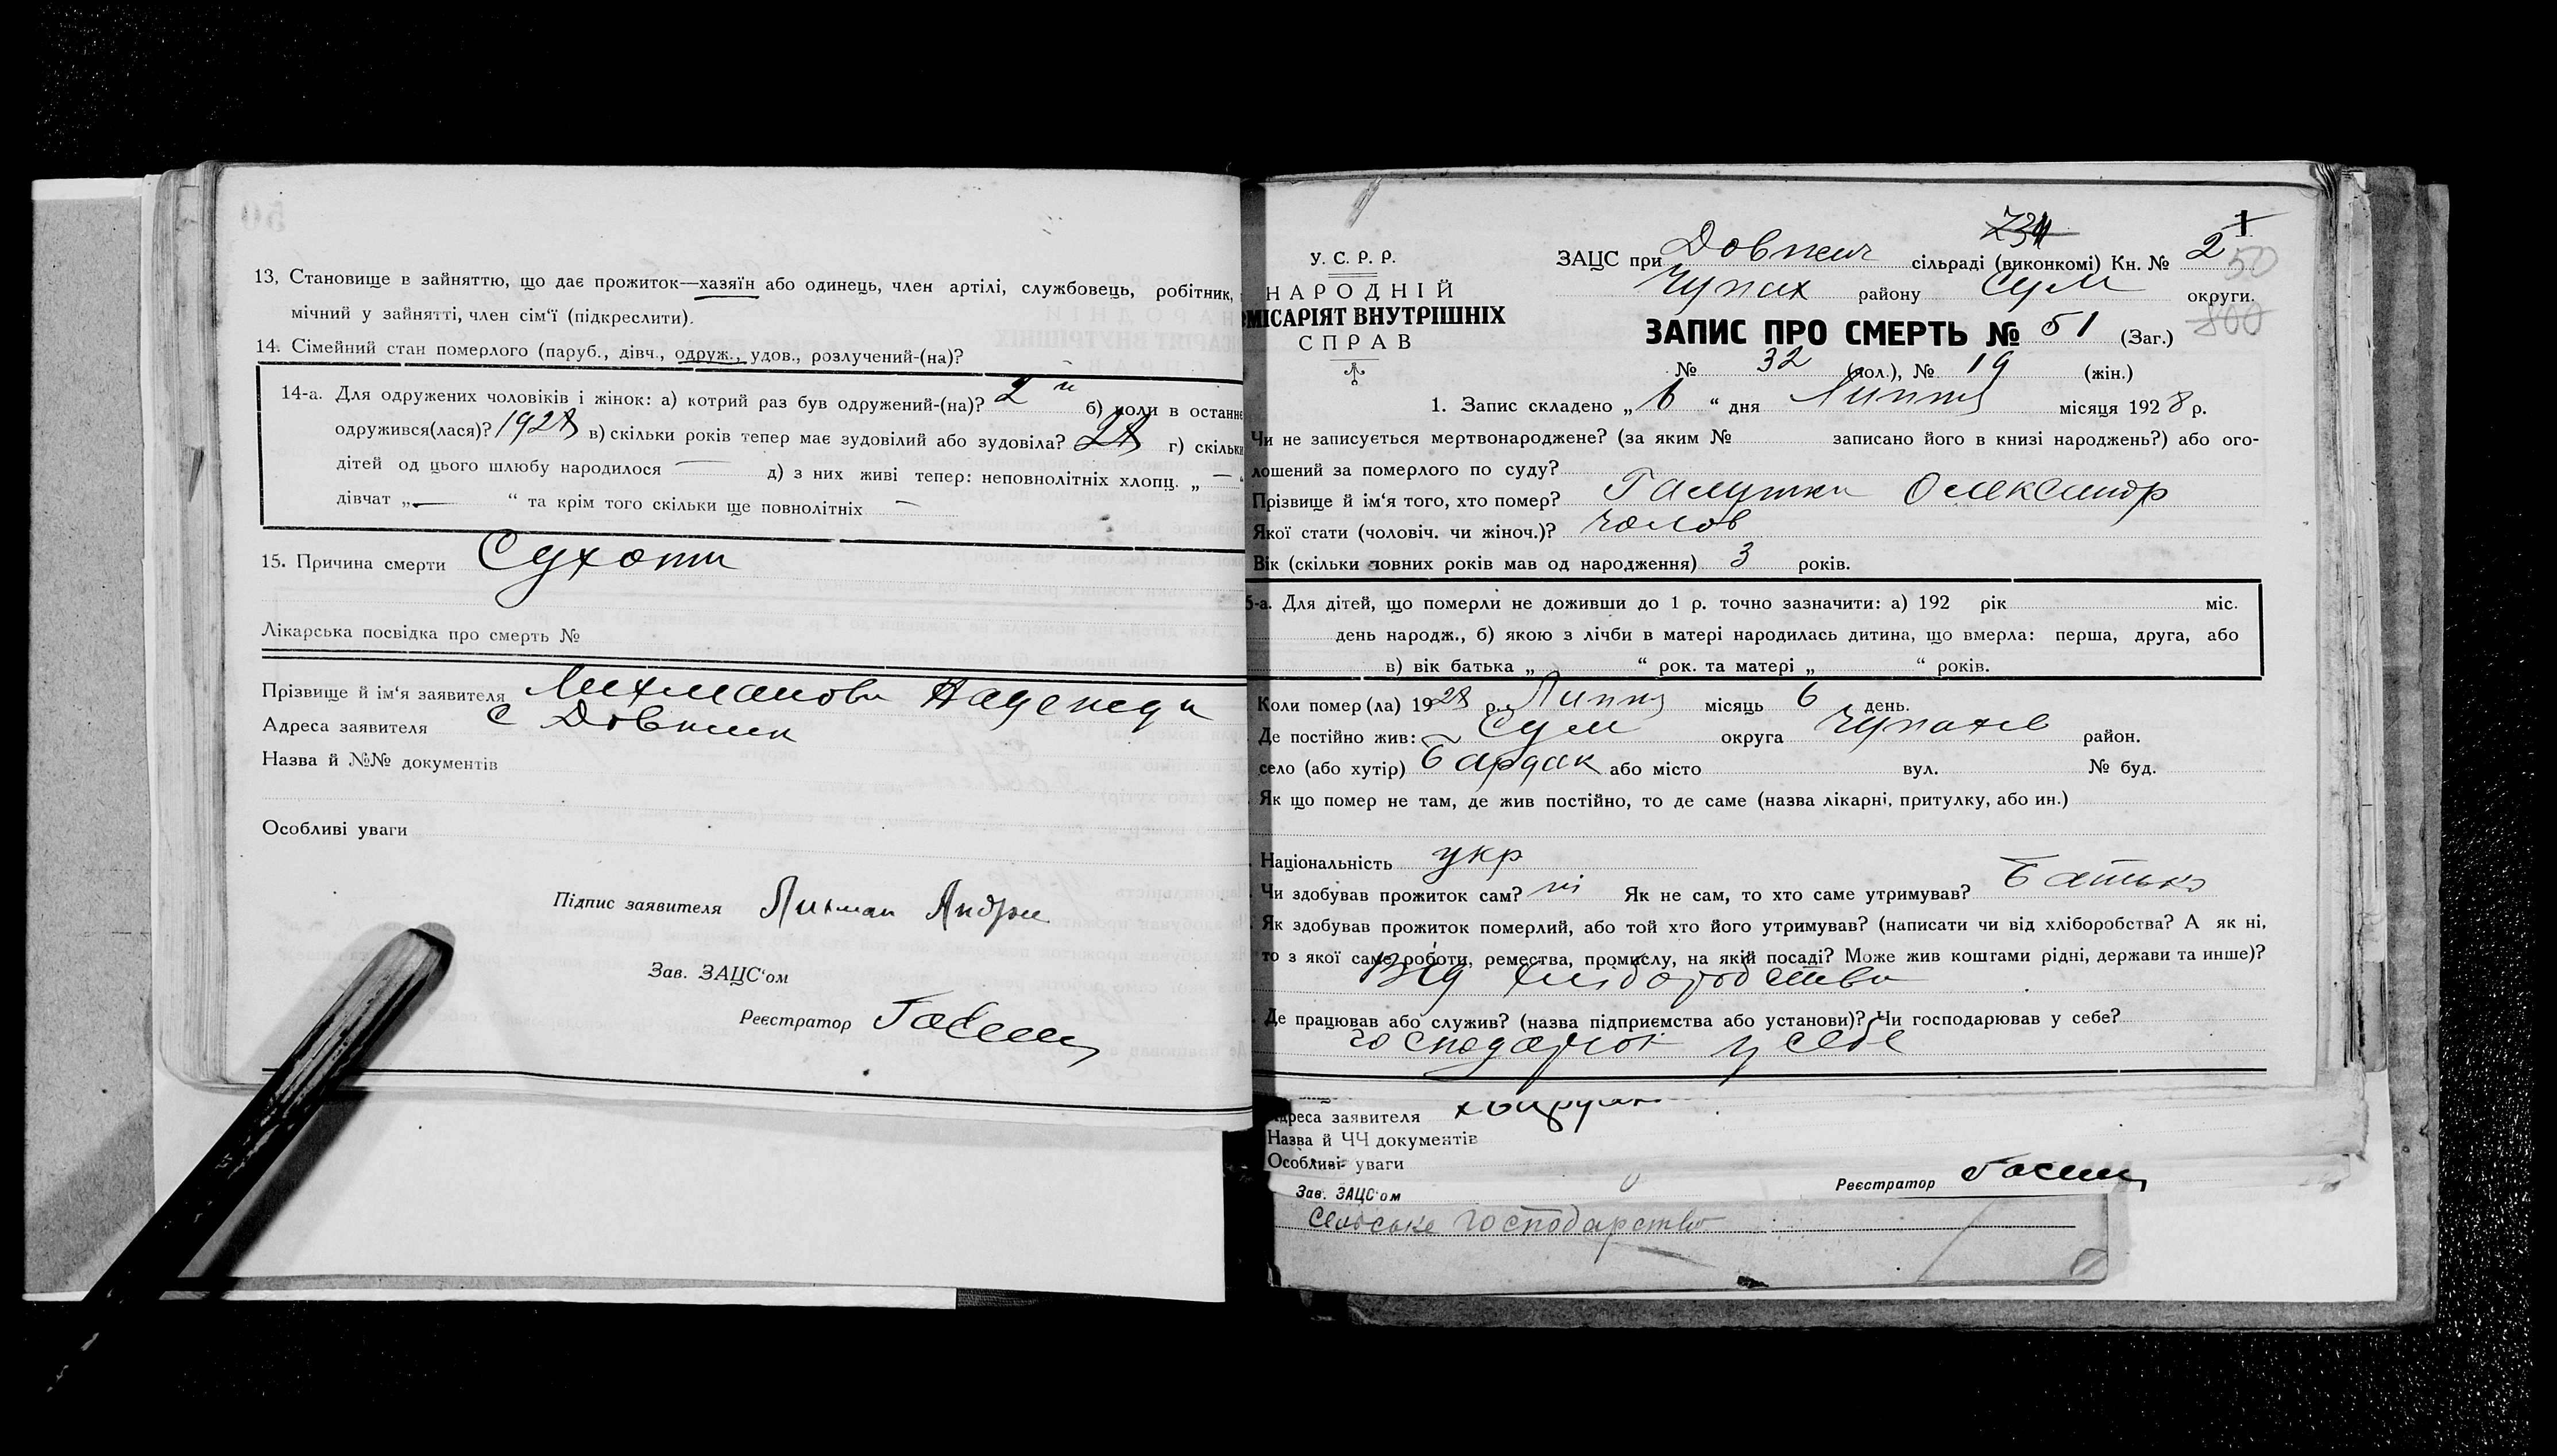 13, Становище в зайняттю, що дає прожиток—хазяїн або одинець, член артілі, службовець, робітник,
мічний у зайнятті, член сім'ї (підкреслити).
14. Сімейний стан померлого (паруб., дівч., одруж., удов., розлучений-(на)?
14-а. Для одружених чоловіків і жінок: а) котрий раз був одружений-(на)? 2 й б) коли в останнє
одружився(лася)? 1928 в) скільки років тепер має зудовілий або зудовіла? 28 г) скільки
дітей од цього шлюбу народилося — д) з них живі тепер: неповнолітніх хлопц. „ — “
дівчат „ — “ та крім того скільки ще повнолітніх —
15. Причина смерти Сухоти
Лікарська посвідка про смерть №
Прізвище й ім'я заявителя Лихманова Надежда
Адреса заявителя с Довжик
Назва й №№ документів
Особливі уваги
Підпис заявителя Лихман Андрей
Зав. ЗАЦС'ом
Реєстратор
734 1
У. С. Р. Р.
НАРОДНІЙ
МІСАРІЯТ ВНУТРІШНІХ
СПРАВ
ЗАЦС при Довжич сільраді (виконкомі) Кн. № 2 50
Чупах району Сум округи.
800
ЗАПИС ПРО СМЕРТЬ № 51 (Заг.)
№ 32 (чол.), № 19 (жін.)
1. Запис складено „ 6 “ дня Липня місяця 1928 р.
Чи не записується мертвонароджене? (за яким № записано його в книзі народжень?) або ого-
лошений за померлого по суду?
Прізвище й ім'я того, хто помер? Галушка Олександр
Якої стати (чоловіч. чи жіноч.)? чолов
Вік (скільки повних років мав од народження) 3 років.
5-а. Для дітей, що померли не доживши до 1 р. точно зазначити: а) 192 рік міс.
день народж., б) якою з лічби в матері народилась дитина, що вмерла: перша, друга, або
в) вік батька „ “ рок. та матері „ “ років.
Коли помер (ла) 1928 р. Липня місяць 6 день.
Де постійно жив: Сум округа Чупахів район.
село (або хутір) Бардак або місто вул. № буд.
Як що помер не там, де жив постійно, то де саме (назва лікарні, притулку, або ин.)
Національність укр
Чи здобував прожиток сам? ні Як не сам, то хто саме утримував? Батько
Як здобував прожиток померлий, або той хто його утримував? (написати чи від хліборобства? А як ні,
то з якої саме роботи, ремества, промислу, на якій посаді? Може жив коштами рідні, держави та инше)?
Від хліборобства
Де працював або служив? (назва підприємства або установи)? Чи господарював у себе?
господарює у себе
Адреса заявителя
Назва й ЧЧ документів
Особливі уваги
Зав. ЗАЦС'ом Реєстратор
сельське господарство